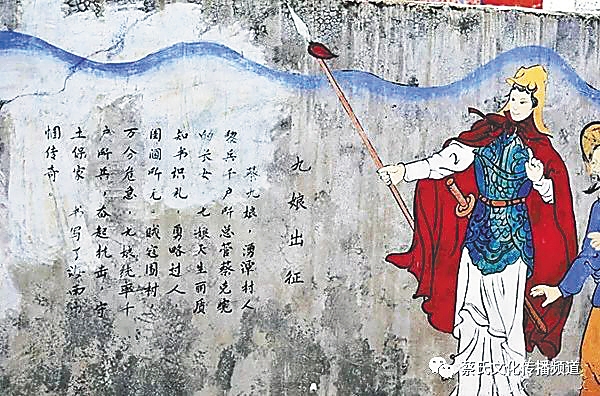 九娘出征
蔡九娘，湧潭村人
黎兵千户所总管蔡克宪
的长女 九娘天生丽质
知书识礼，勇略过人，
闺阁所无。贼寇围村
万分危急，九娘统率千
户所兵，奋起抗击，守
土保家 书写了 巾
帼传奇。
蔡氏文化传播频道